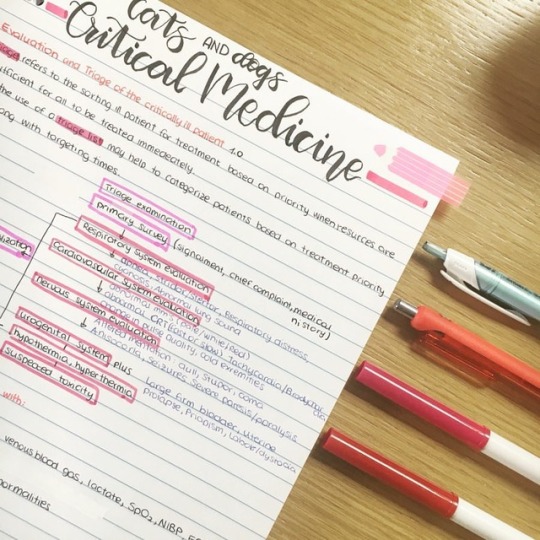 Cats AND dogs
Critical Medicine
Evaluation and Triage of the critically ill patient 1.0
refers to the sorting ill patient for treatment based on priority when resurces are
sufficient for all to be treated immediately.
the use of a triage list may help to categorize patients based on treatment priority
ong with targeting times.
Triage examination
primary survey (signalment, chief complaint, medical history)
Respiratory system evaluation
stridor, stertor, Respiratory distress
cyanosis, Abnormal lung sound
cardiovascular system evaluation
abnormal mms (pale/white/red)
abnormal CRT (fast or slow) Tachycardia/Bradycardia
pulse quality, cold extremities
nervous system evaluation
mentation: dull, stupor, coma
Anisocoria, Seizures severe paresis/paralysis
urogenital system plus
Large firm bladder, uterine
prolapse, Priapism, Labor/dystocia
hypothermia, hyperthermia
suspected toxicity
with:
venous blood gas, lactate, SpO2, NIBP, EC
normalities